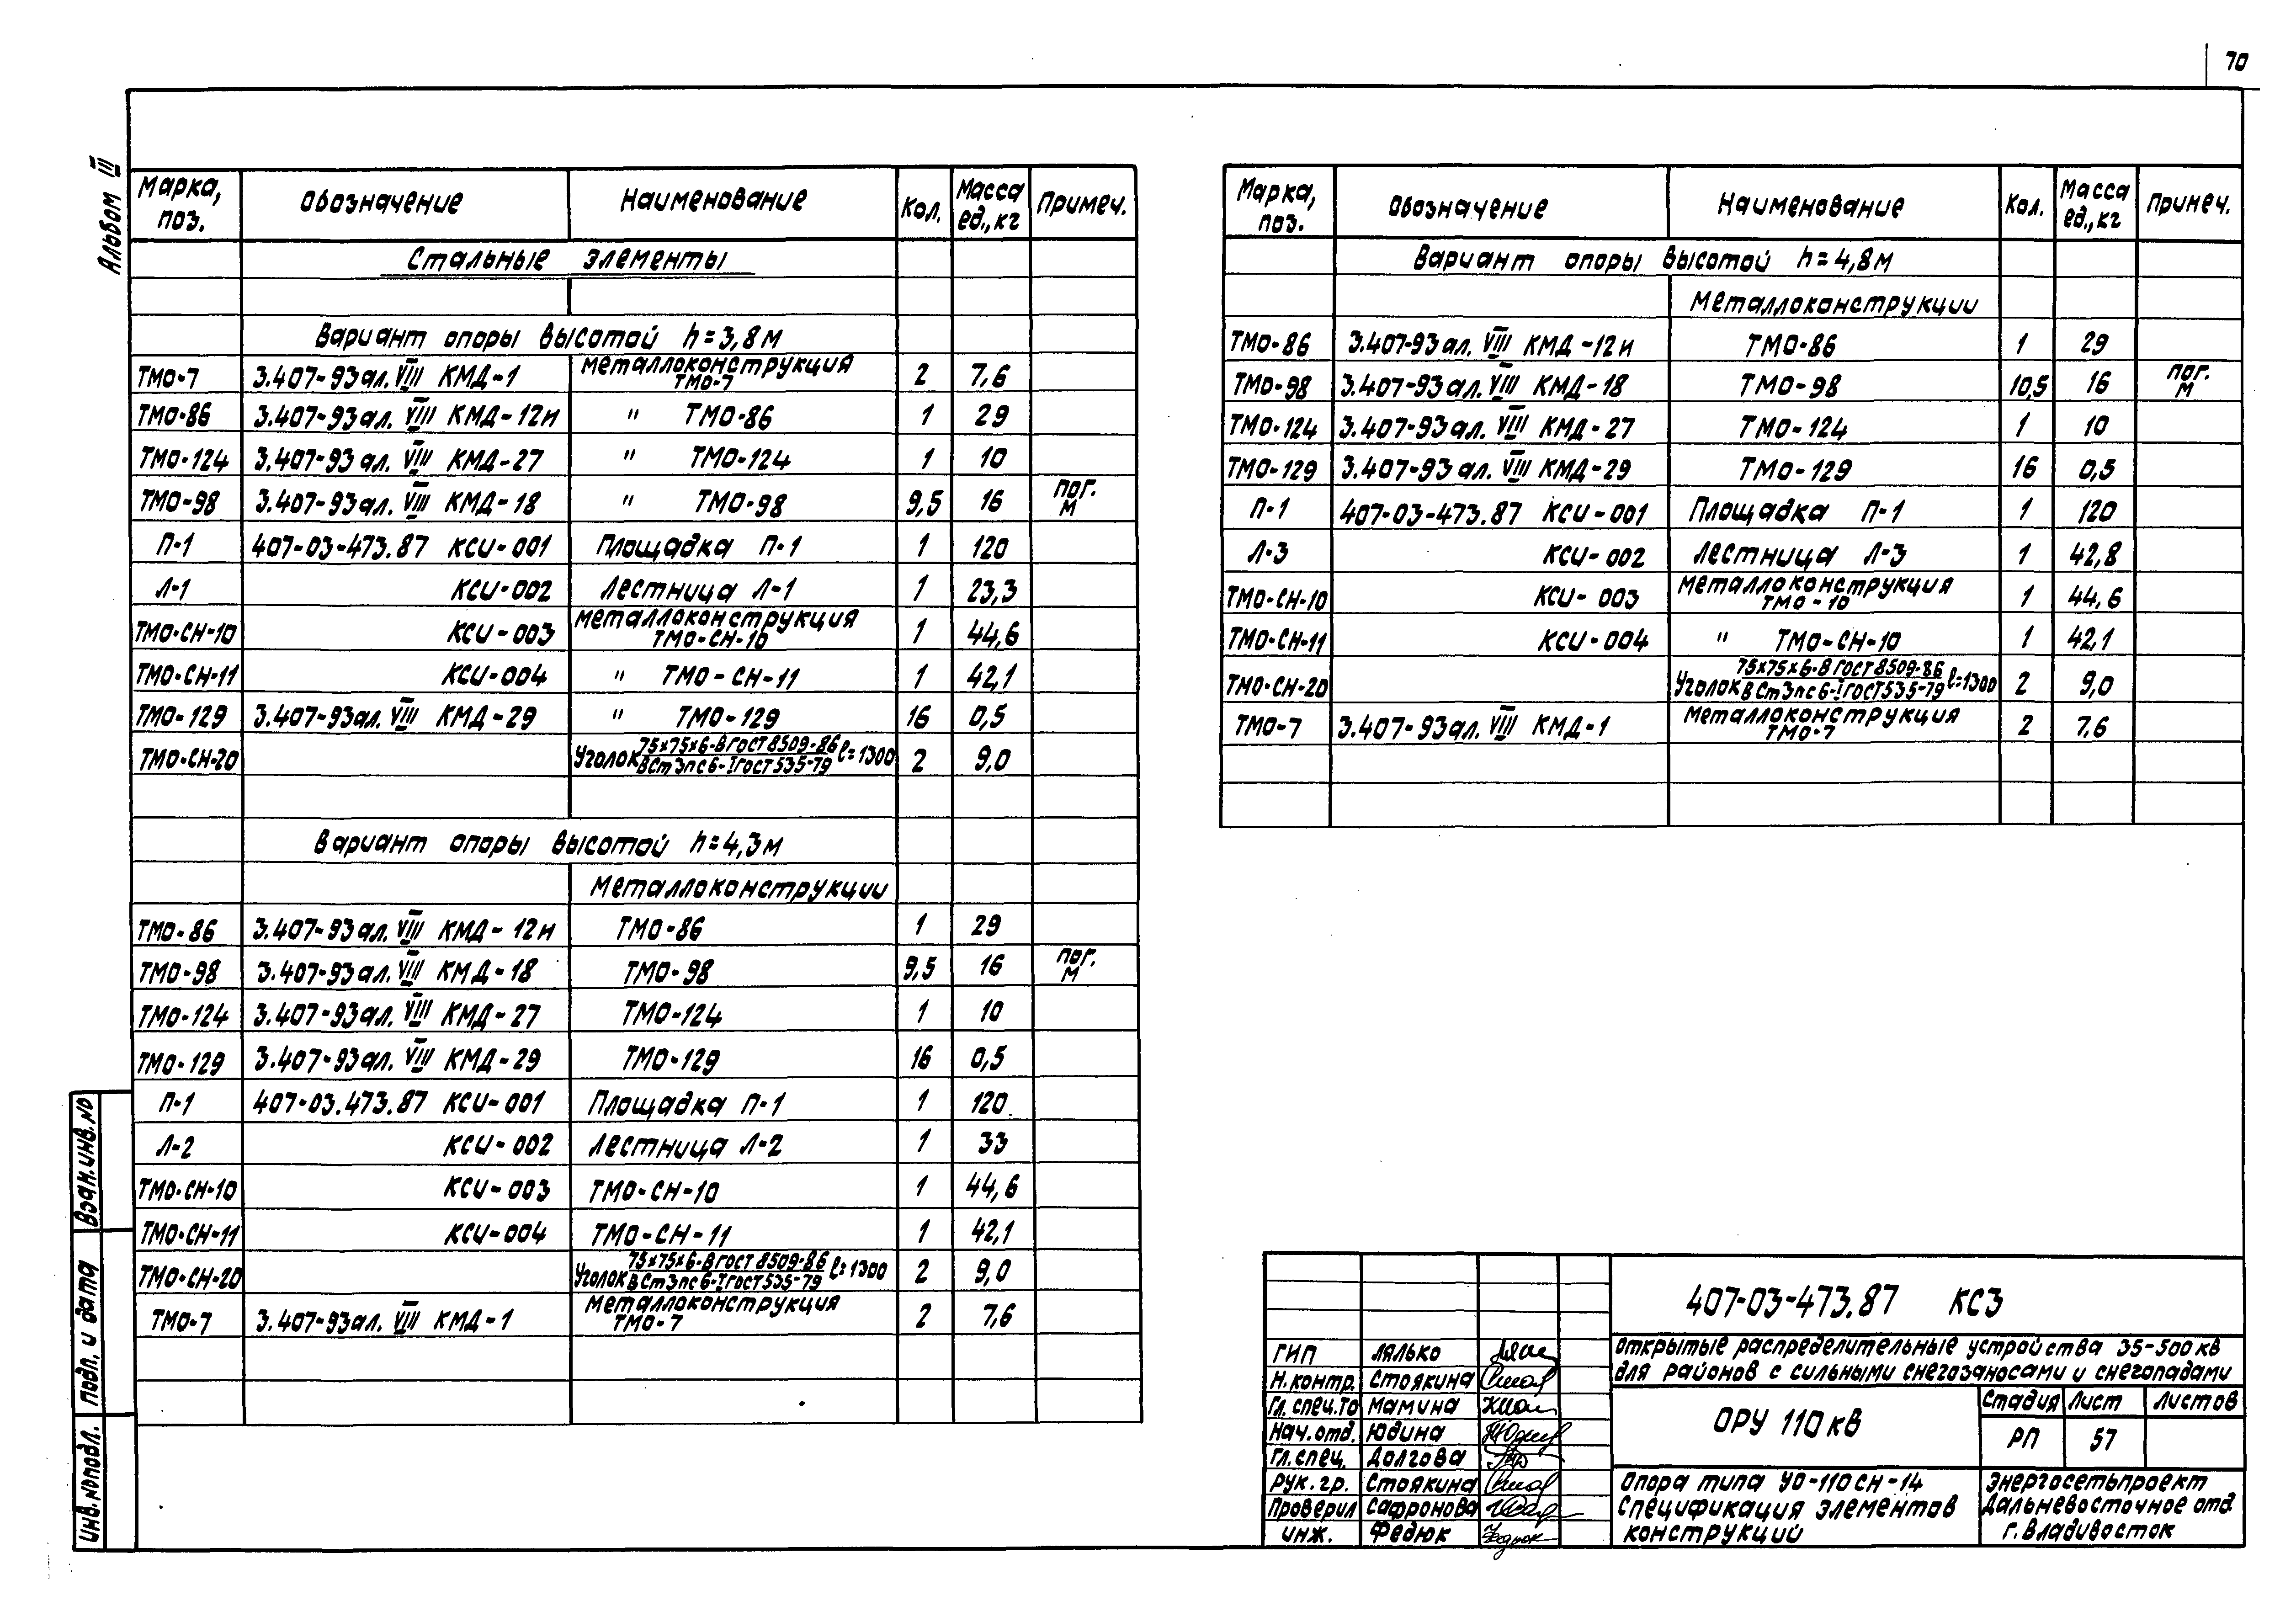 70
Альбом III
Марка, поз. Обозначение Наименование Кол. Масса ед., кг Примеч.
Стальные элементы
Вариант опоры высотой h=3,8м
ТМО-7 3.407-93 ал. VIII КМД-1 Металлоконструкция ТМО-7 2 7,6
ТМО-86 3.407-93 ал. VIII КМД-12и " ТМО-86 1 29
ТМО-124 3.407-93 ал. VIII КМД-27 " ТМО-124 1 10
ТМО-98 3.407-93 ал. VIII КМД-18 " ТМО-98 9,5 16 пог. м
П-1 407-03-473.87 КСИ-001 Площадка П-1 1 120
Л-1 КСИ-002 Лестница Л-1 1 23,3
ТМО-СН-10 КСИ-003 Металлоконструкция ТМО-СН-10 1 44,6
ТМО-СН-11 КСИ-004 " ТМО-СН-11 1 42,1
ТМО-129 3.407-93 ал. VIII КМД-29 " ТМО-129 16 0,5
ТМО-СН-20 Уголок 75х75х6-В ГОСТ 8509-86 / ВСт3пс6-I ГОСТ 535-79 ℓ=1300 2 9,0
Вариант опоры высотой h=4,3м
Металлоконструкции
ТМО-86 3.407-93 ал. VIII КМД-12и ТМО-86 1 29
ТМО-98 3.407-93 ал. VIII КМД-18 ТМО-98 9,5 16 пог. м
ТМО-124 3.407-93 ал. VIII КМД-27 ТМО-124 1 10
ТМО-129 3.407-93 ал. VIII КМД-29 ТМО-129 16 0,5
П-1 407-03.473.87 КСИ-001 Площадка П-1 1 120
Л-2 КСИ-002 Лестница Л-2 1 33
ТМО-СН-10 КСИ-003 ТМО-СН-10 1 44,6
ТМО-СН-11 КСИ-004 ТМО-СН-11 1 42,1
ТМО-СН-20 Уголок 75х75х6-В ГОСТ 8509-86 / ВСт3пс6-I ГОСТ 535-79 ℓ=1300 2 9,0
ТМО-7 3.407-93 ал. VIII КМД-1 Металлоконструкция ТМО-7 2 7,6
Марка, поз. Обозначение Наименование Кол. Масса ед., кг Примеч.
Вариант опоры высотой h=4,8м
Металлоконструкции
ТМО-86 3.407-93 ал. VIII КМД-12и ТМО-86 1 29
ТМО-98 3.407-93 ал. VIII КМД-18 ТМО-98 10,5 16 пог. м
ТМО-124 3.407-93 ал. VIII КМД-27 ТМО-124 1 10
ТМО-129 3.407-93 ал. VIII КМД-29 ТМО-129 16 0,5
П-1 407-03-473.87 КСИ-001 Площадка П-1 1 120
Л-3 КСИ-002 Лестница Л-3 1 42,8
ТМО-СН-10 КСИ-003 Металлоконструкция ТМО-10 1 44,6
ТМО-СН-11 КСИ-004 " ТМО-СН-10 1 42,1
ТМО-СН-20 Уголок 75х75х6-В ГОСТ 8509-86 / ВСт3пс6-I ГОСТ 535-79 ℓ=1300 2 9,0
ТМО-7 3.407-93 ал. VIII КМД-1 Металлоконструкция ТМО-7 2 7,6
Взам. инв. №
Подп. и дата
Инв. № подл.
407-03-473.87 КС3
Открытые распределительные устройства 35-500 кВ
для районов с сильными снегозаносами и снегопадами
ГИП Лялько
Н. контр. Стоякина
Гл. спец. ТО Мамина
Нач. отд. Юдина
Гл. спец. Долгова
Рук. гр. Стоякина
Проверил Сафронова
Инж. Федюк
ОРУ 110 кВ
Стадия Лист Листов
РП 57
Опора типа УО-110 СН-14
Спецификация элементов
конструкций
Энергосетьпроект
Дальневосточное отд.
г. Владивосток